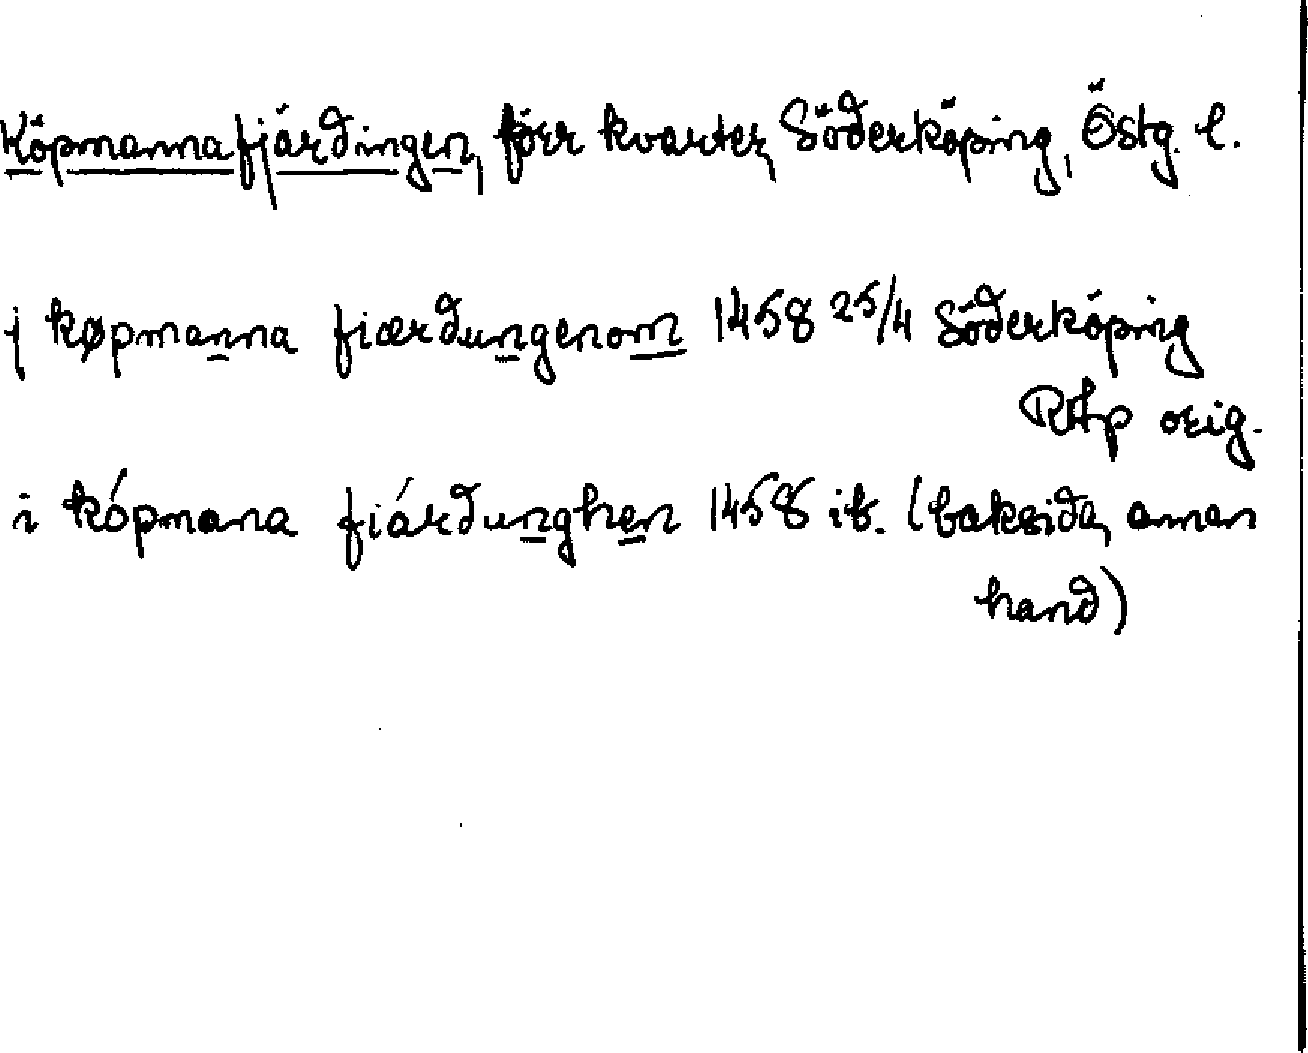 Köpmannafjärdingen, förr kvarter, Söderköping, Östg. l.
j køpmanna fiærdungenom 1458 25/4 Söderköping
RAp orig.
i kópmana fiárdunghen 1458 ib. (baksida, annan
hand)